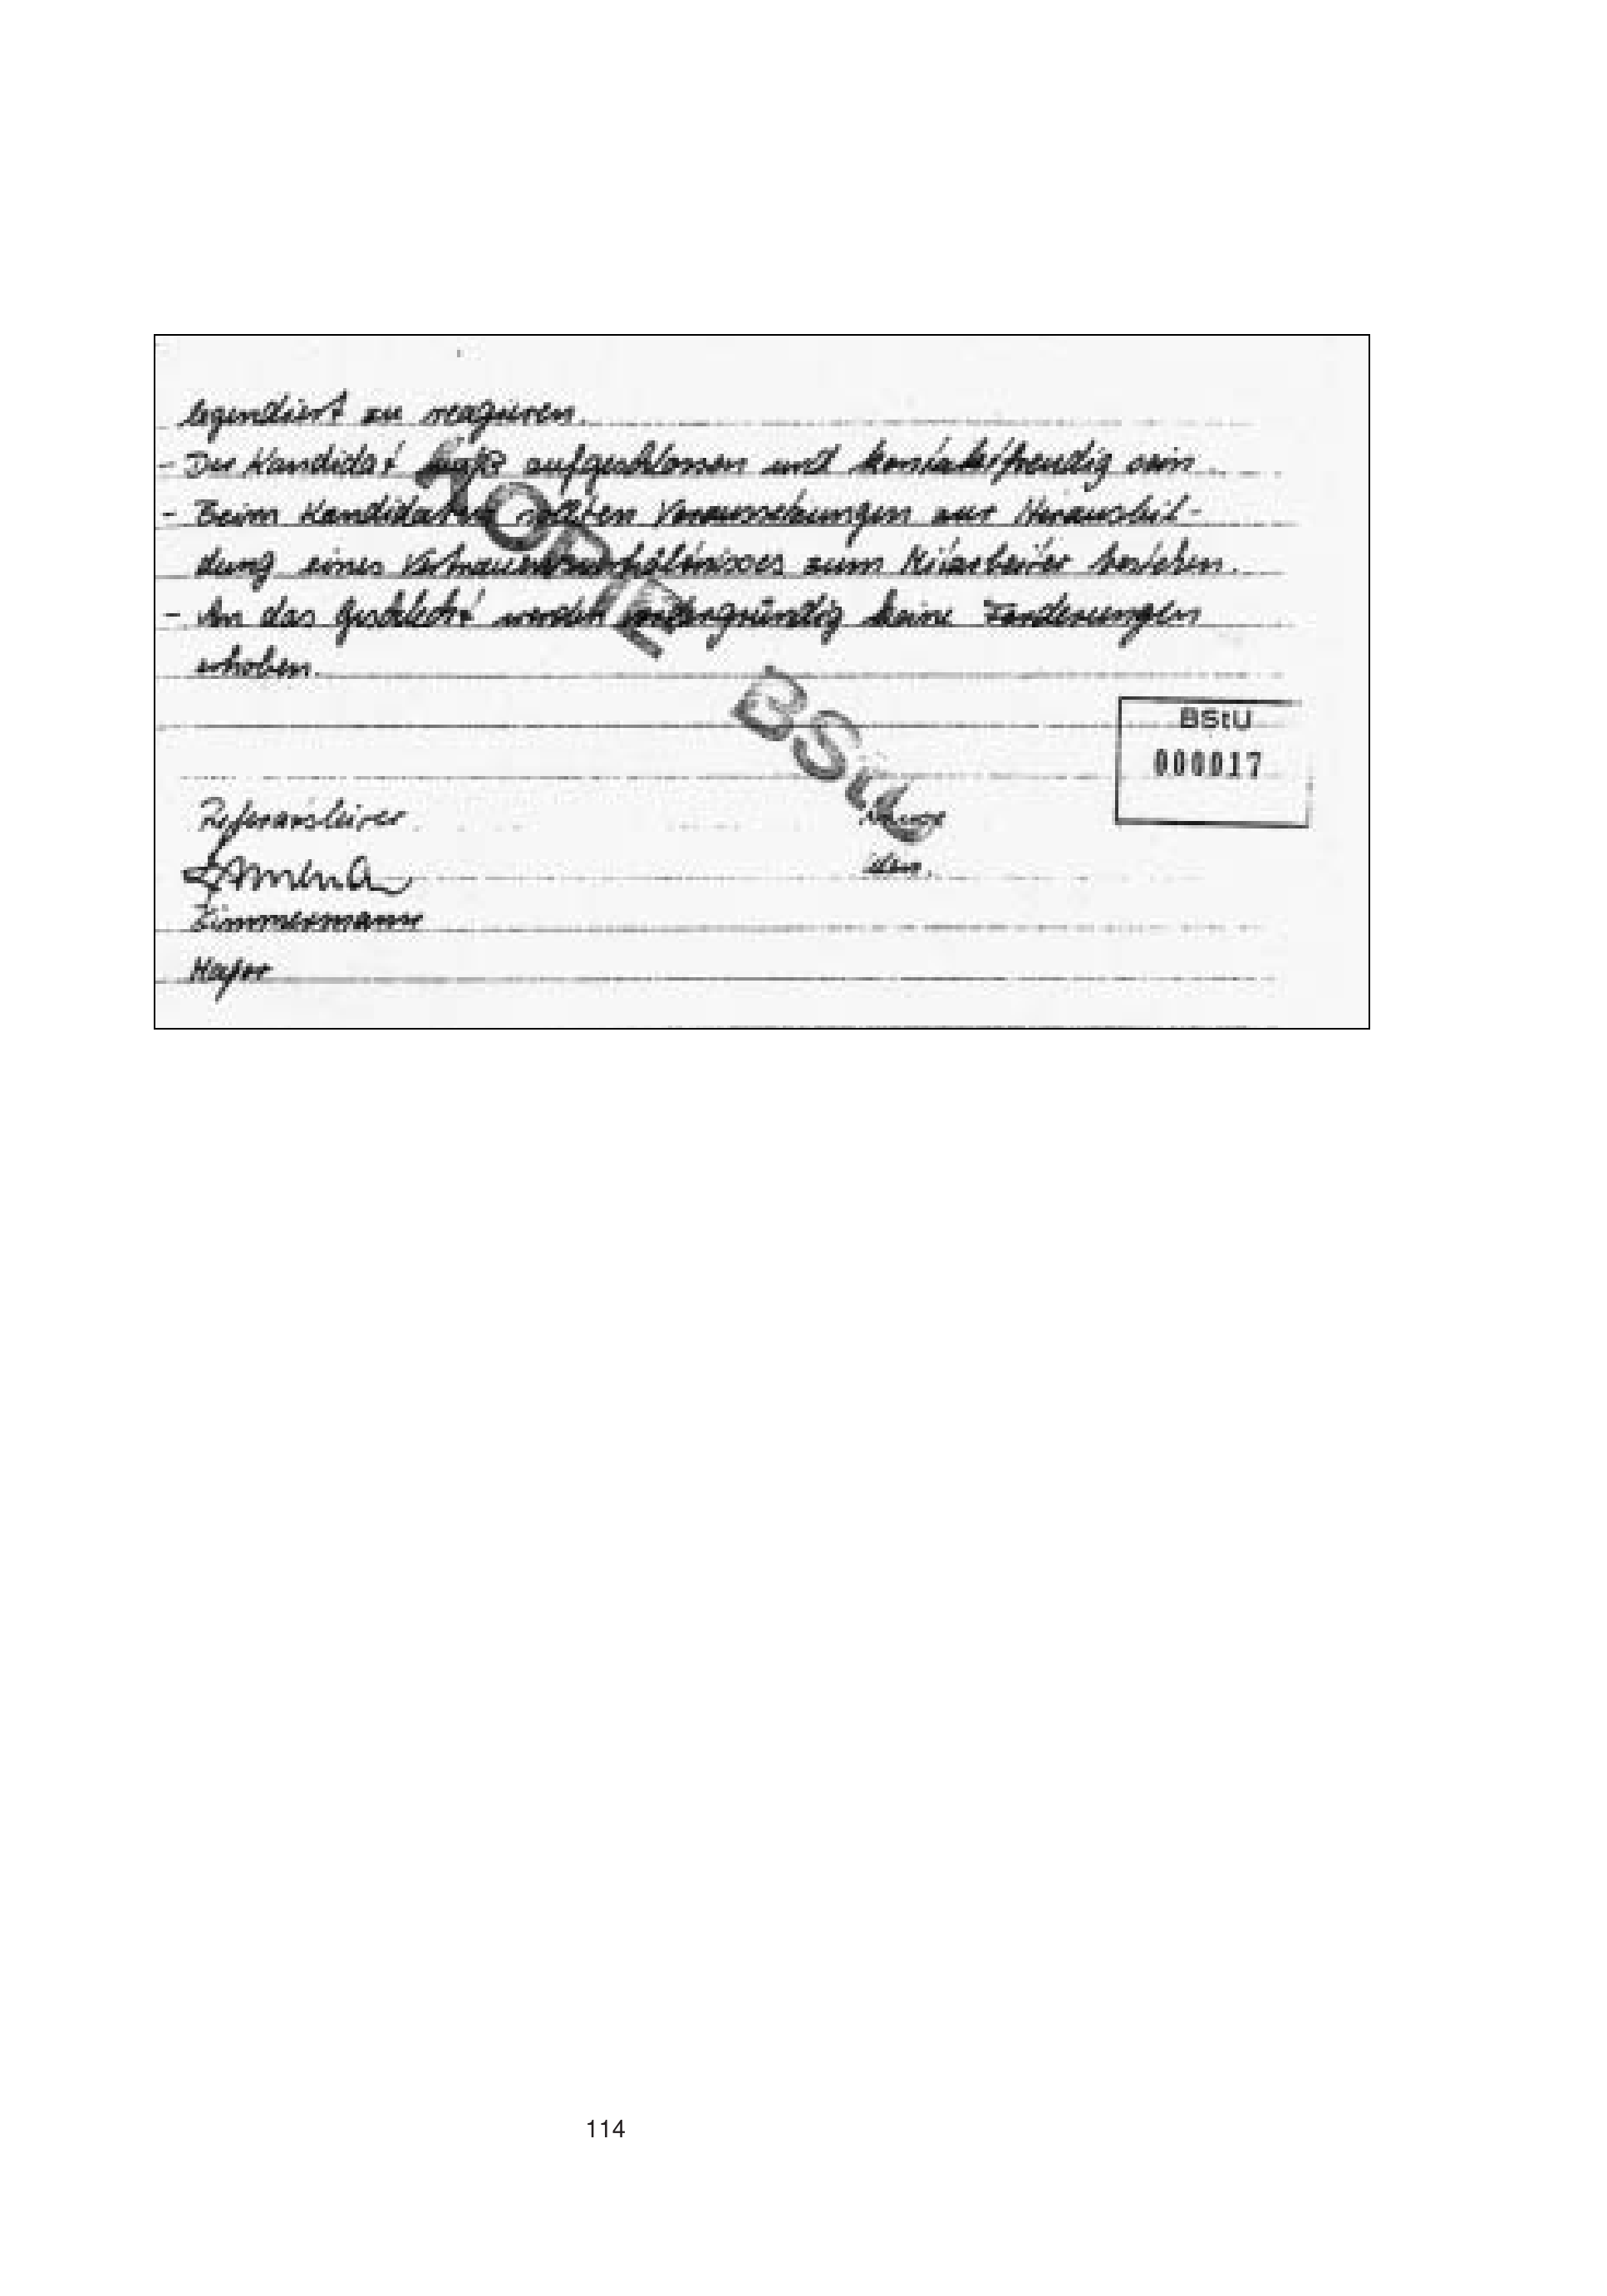 legendiert zu reagieren.
- Der Kandidat muß aufgeschlossen und kontaktfreudig sein.
- Beim Kandidaten sollten Voraussetzungen zur Herausbil-
dung eines Vertrauensverhältnisses zum Mitarbeiter bestehen.
- An das Geschlecht werden vordergründig keine Forderungen
erhoben.
KOPIE BStU
BStU
000017
Referatsleiter
Zimmermann
Major
114